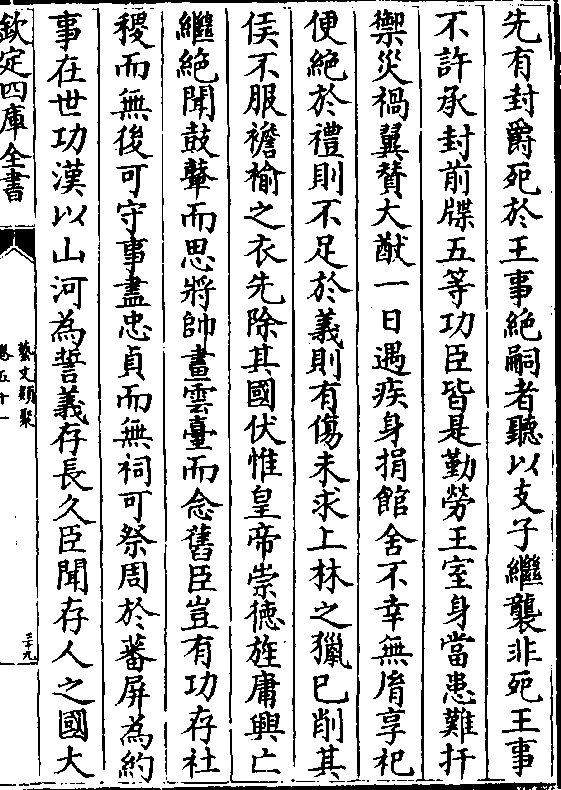 先有封爵死於王事絶嗣者聽以支子繼襲非死王事
不許承封前牒五等功臣皆是勤勞王室身當患難扞
禦災禍翼賛大猷一日遇疾身捐館舍不幸無胤享祀
便絶於禮則不足於義則有傷未求上林之獵已削其
侯不服襜褕之衣先除其國伏惟皇帝崇徳旌庸興亡
繼絶聞鼓鼙而思將帥畫雲臺而念舊臣豈有功存社
稷而無後可守事盡忠貞而無祠可祭周於蕃屏為約
事在世功漢以山河為誓義存長久臣聞存人之國大
欽定四庫全書
藝文類聚
卷五十一
三十九